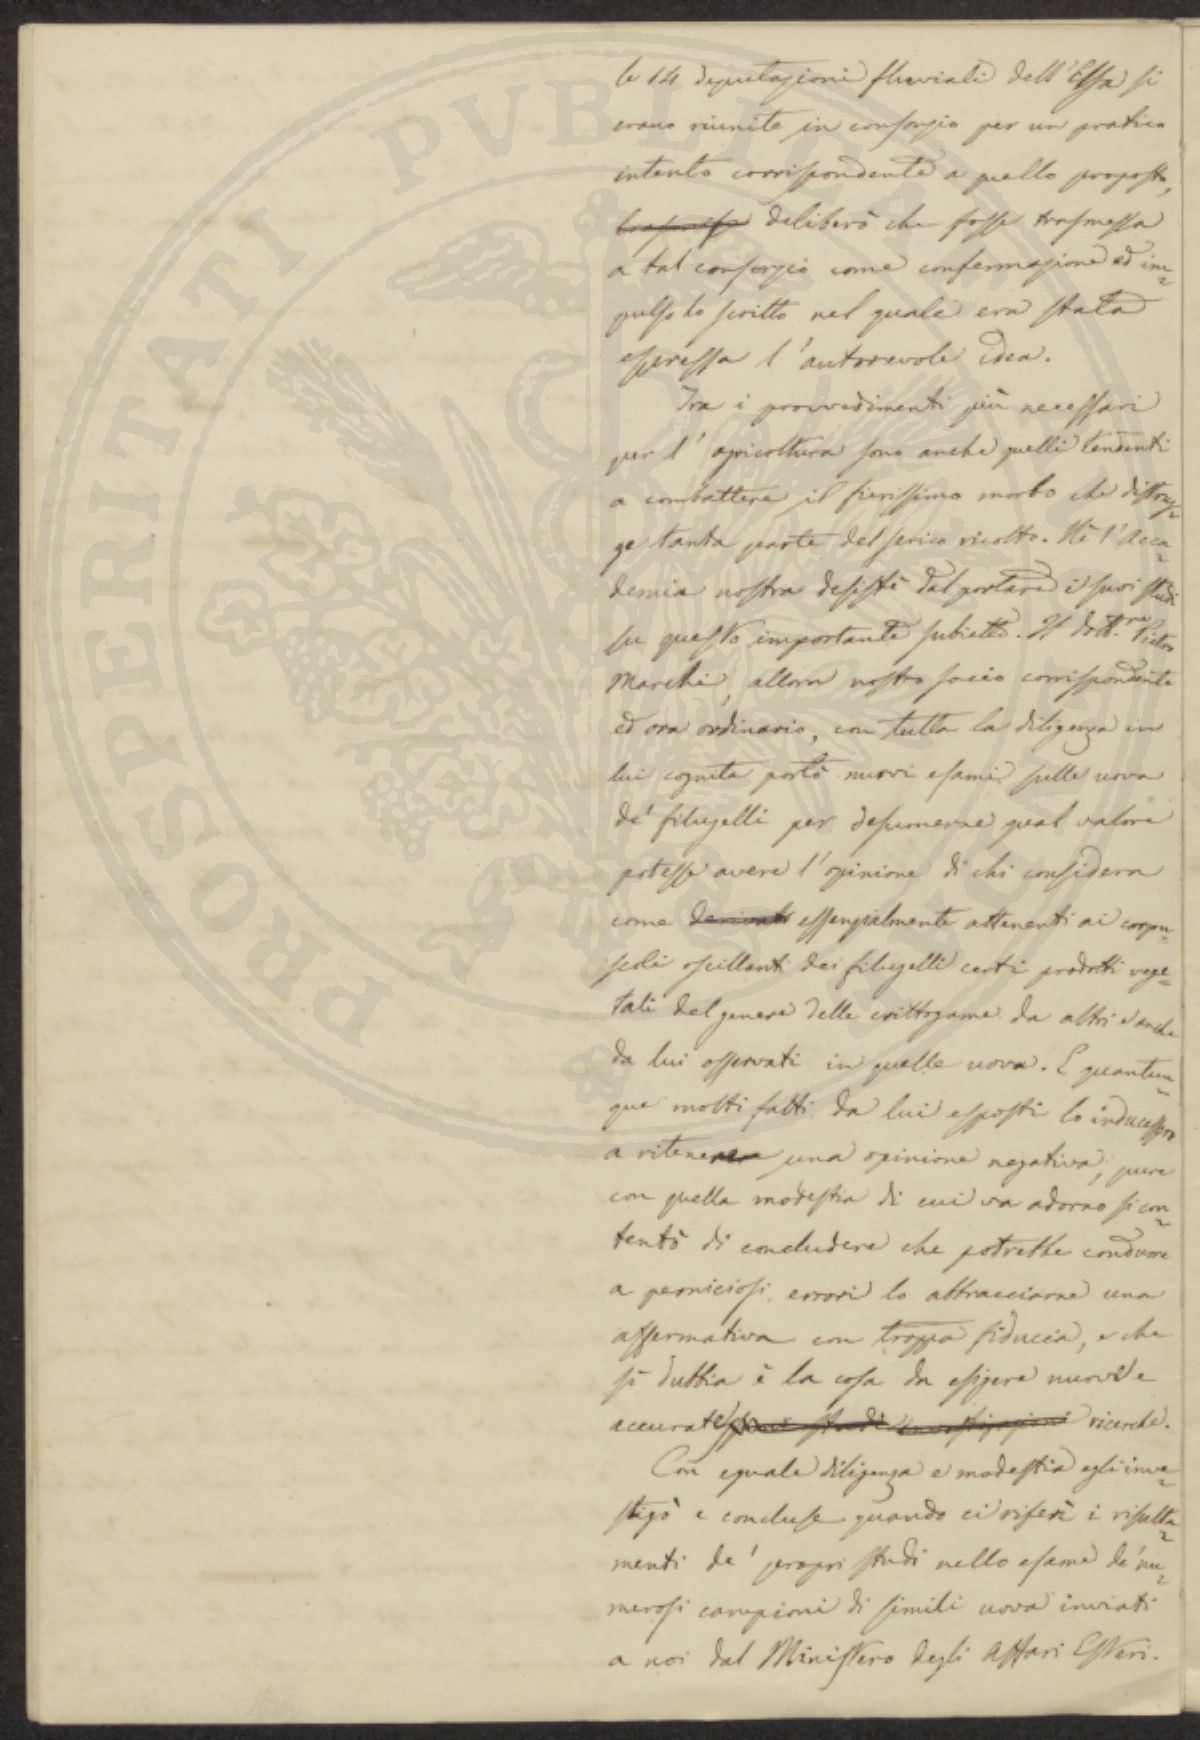 PROSPERITATI PVBLICAE AVGENDAE
le 14 deputazioni fluviali dell'Elsa si
erano riunite in consorzio per un pratico
intento corrispondente a quello proposto,
deliberò che fosse trasmessa
a tal consorzio come confermazione ed im=
pulso lo scritto nel quale era stata
espressa l'autorevole idea.
Tra i provvedimenti più necessari
per l'agricoltura sono anche quelli tendenti
a combattere il fierissimo morbo che distrug=
ge tanta parte del serico ricolto. Nè l'Acca=
demia nostra desistè dal portare i suoi studi
su questo importante subietto. Il dott.re Pietro
Marchi, allora nostro socio corrispondente
ed ora ordinario, con tutta la diligenza in
lui cognita portò nuovi esami sulle uova
de' filugelli per desumerne qual valore
potesse avere l'opinione di chi considera
come derivati essenzialmente attenenti ai corpu=
scoli oscillanti dei filugelli certi prodotti vege=
tali del genere delle crittogame da altri e anche
da lui osservati in quelle uova. E quantun=
que molti fatti da lui esposti lo inducessero
a ritenere una opinione negativa, pure
con quella modestia di cui va adorno si con=
tentò di concludere che potrebbe condurre
a perniciosi errori lo abbracciarne una
affermativa con troppa fiducia, e che
sì dubbia è la cosa da esigere nuove e
accurate studi investigazioni ricerche.
Con eguale diligenza e modestia egli inve=
stigò e concluse quando ci riferì i risulta=
menti de' propri studi nello esame de' nu=
merosi campioni di simili uova inviati
a noi dal Ministero degli Affari Esteri.